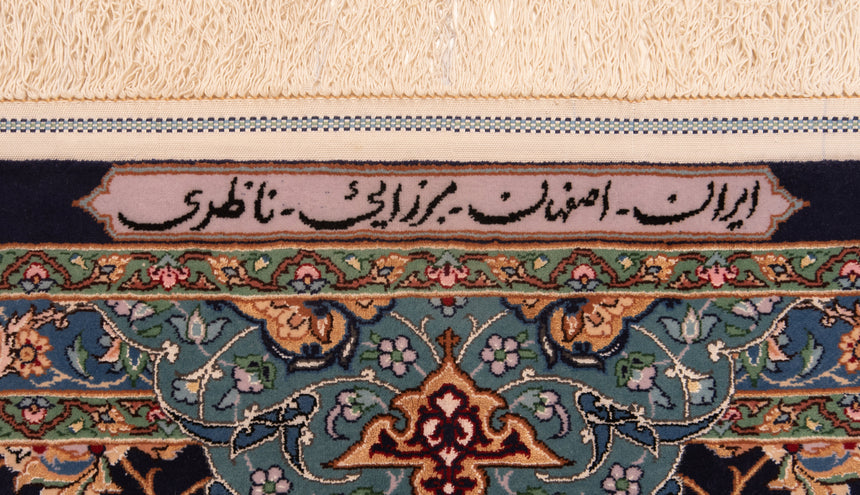 ایران - اصفهان - میرزایی - ناظری